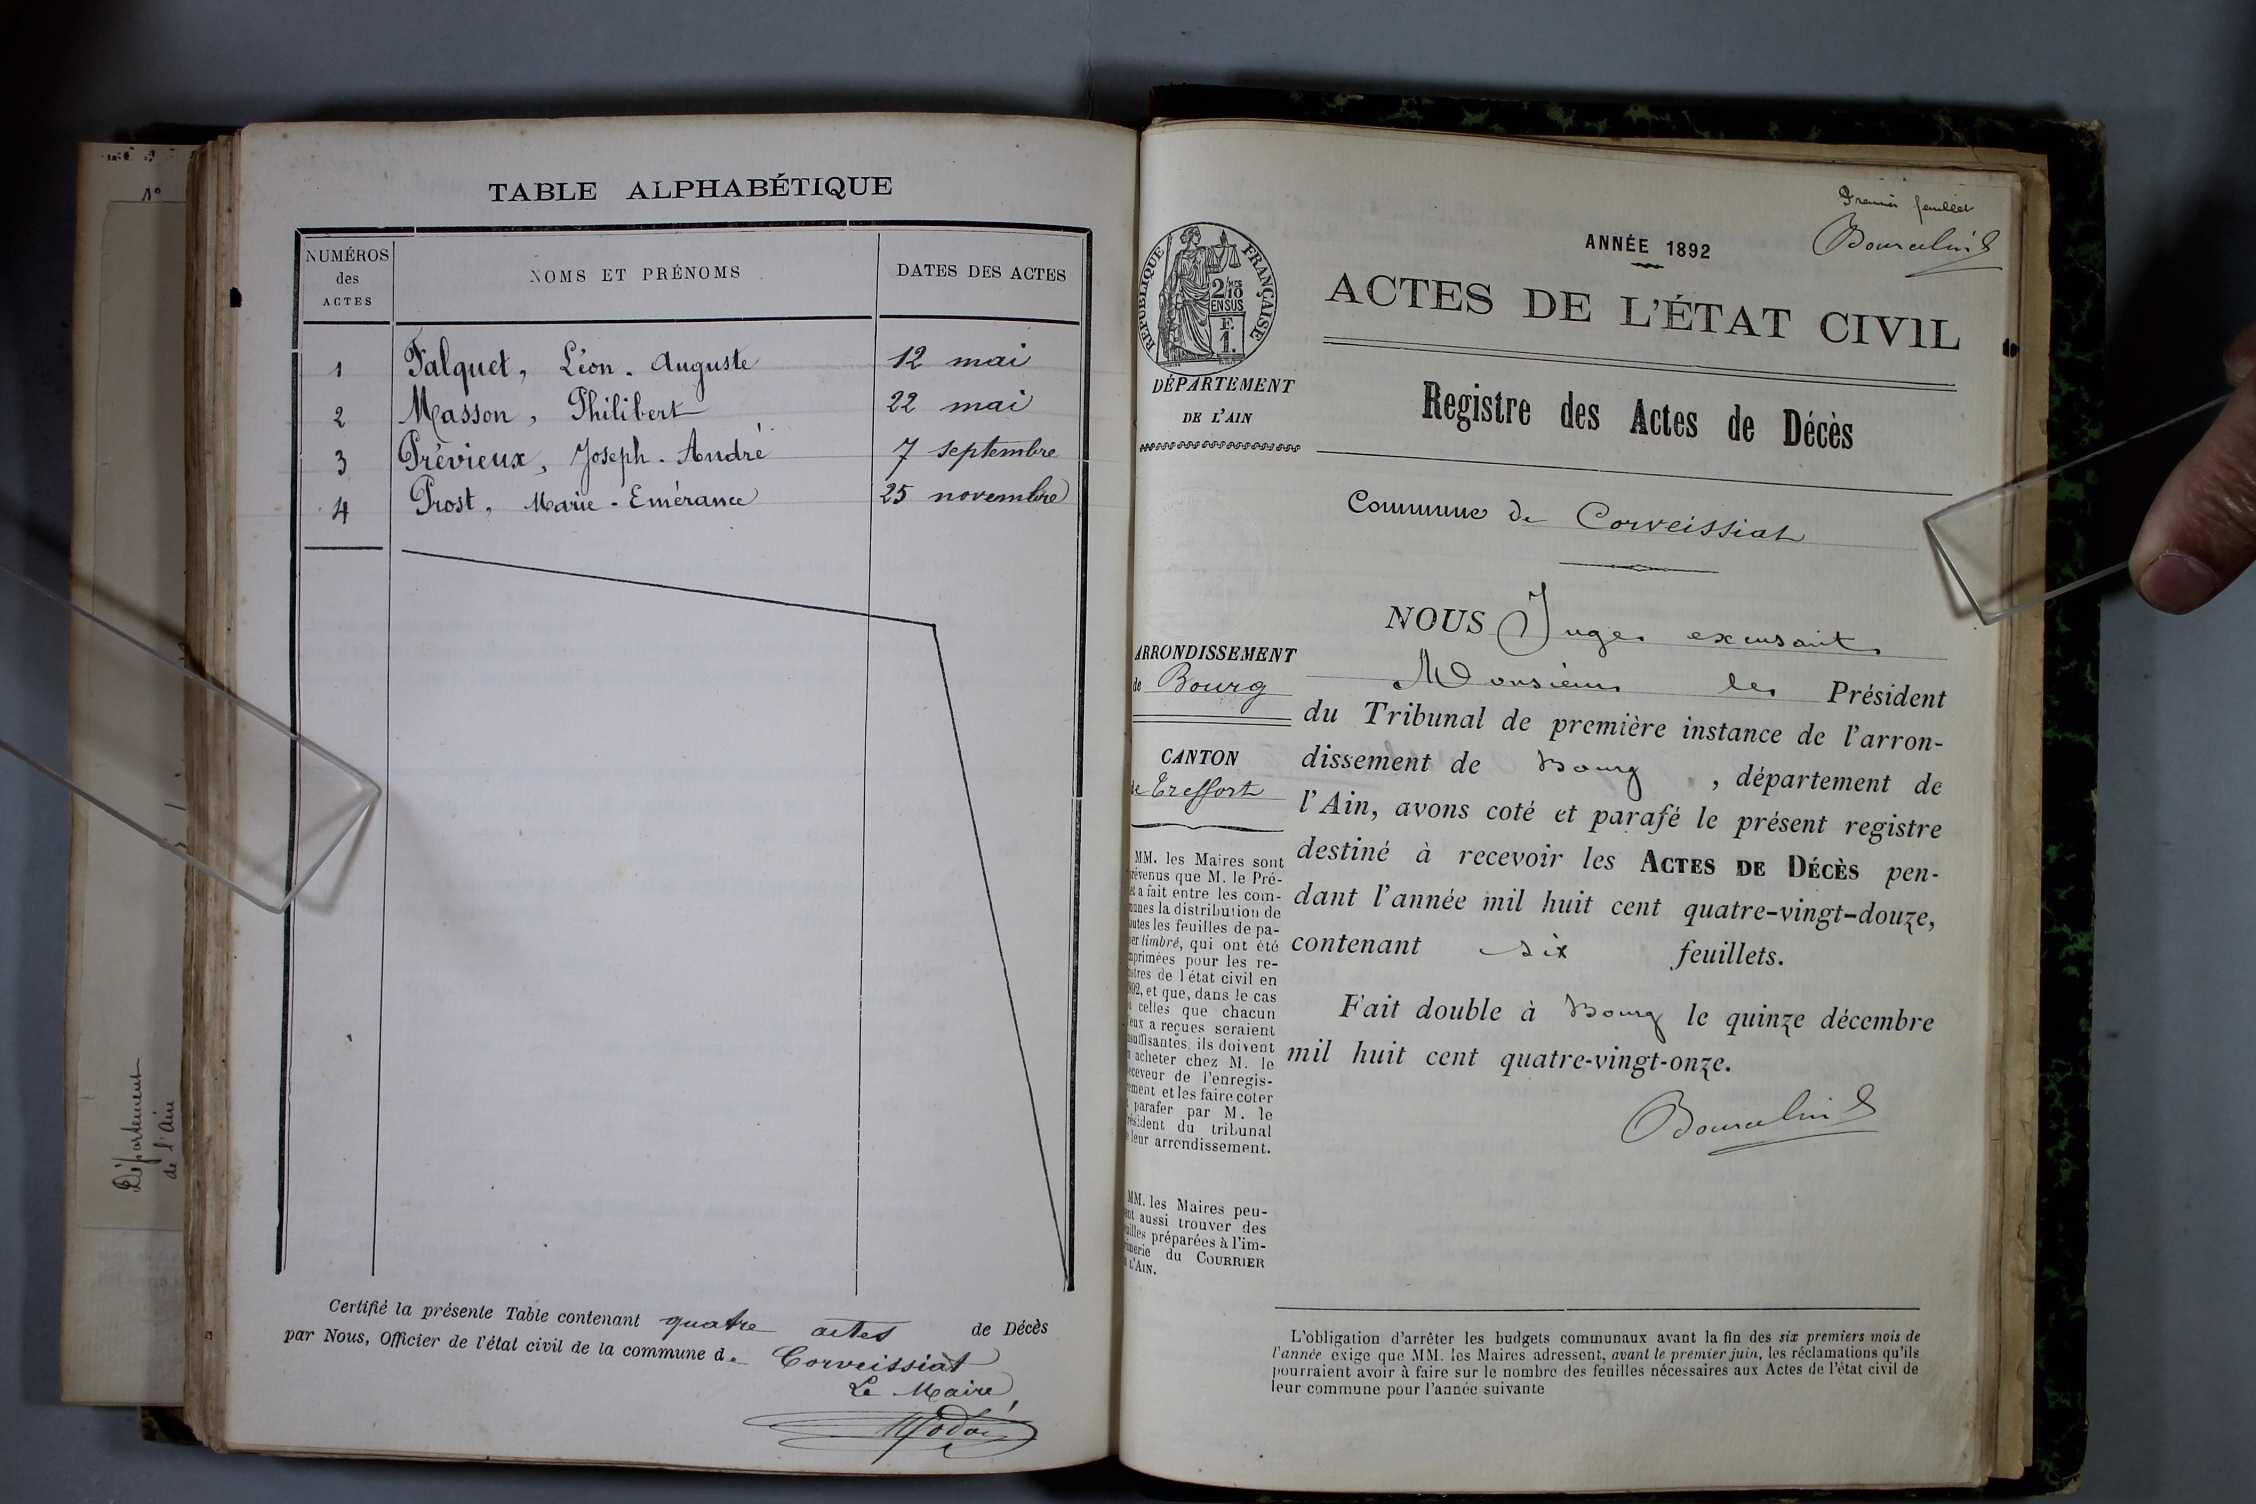 N°
Département
de l'Ain
TABLE ALPHABÉTIQUE
NUMÉROS des ACTES
NOMS ET PRÉNOMS
DATES DES ACTES
1 Falquet, Léon. Auguste 12 mai
2 Masson, Philibert 22 mai
3 Prévieux, Joseph. André 7 septembre
4 Prost, Marie-Emérance 25 novembre
Certifié la présente Table contenant quatre actes de Décès
par Nous, Officier de l'état civil de la commune de Corveissiat
Le Maire
Premier feuillet
ANNÉE 1892
RÉPUBLIQUE FRANÇAISE
2/10 EN SUS
F. 1.
ACTES DE L'ÉTAT CIVIL
DÉPARTEMENT
DE L'AIN
Registre des Actes de Décès
Commune de Corveissiat
ARRONDISSEMENT
de Bourg
CANTON
de Treffort
MM. les Maires sont
prévenus que M. le Pré-
fet a fait entre les com-
munes la distribution de
toutes les feuilles de pa-
pier timbré, qui ont été
imprimées pour les re-
gistres de l'état civil en
1892, et que, dans le cas
où celles que chacun
d'eux a reçues seraient
insuffisantes, ils doivent
en acheter chez M. le
receveur de l'enregis-
trement et les faire coter
et parafer par M. le
Président du tribunal
de leur arrondissement.
MM. les Maires peu-
vent aussi trouver des
feuilles préparées à l'im-
primerie du COURRIER
DE L'AIN.
NOUS Juge excusant
Monsieur le Président
du Tribunal de première instance de l'arron-
dissement de Bourg, département de
l'Ain, avons coté et parafé le présent registre
destiné à recevoir les ACTES DE DÉCÈS pen-
dant l'année mil huit cent quatre-vingt-douze,
contenant six feuillets.
Fait double à Bourg le quinze décembre
mil huit cent quatre-vingt-onze.
L'obligation d'arrêter les budgets communaux avant la fin des six premiers mois de
l'année exige que MM. les Maires adressent, avant le premier juin, les réclamations qu'ils
pourraient avoir à faire sur le nombre des feuilles nécessaires aux Actes de l'état civil de
leur commune pour l'année suivante